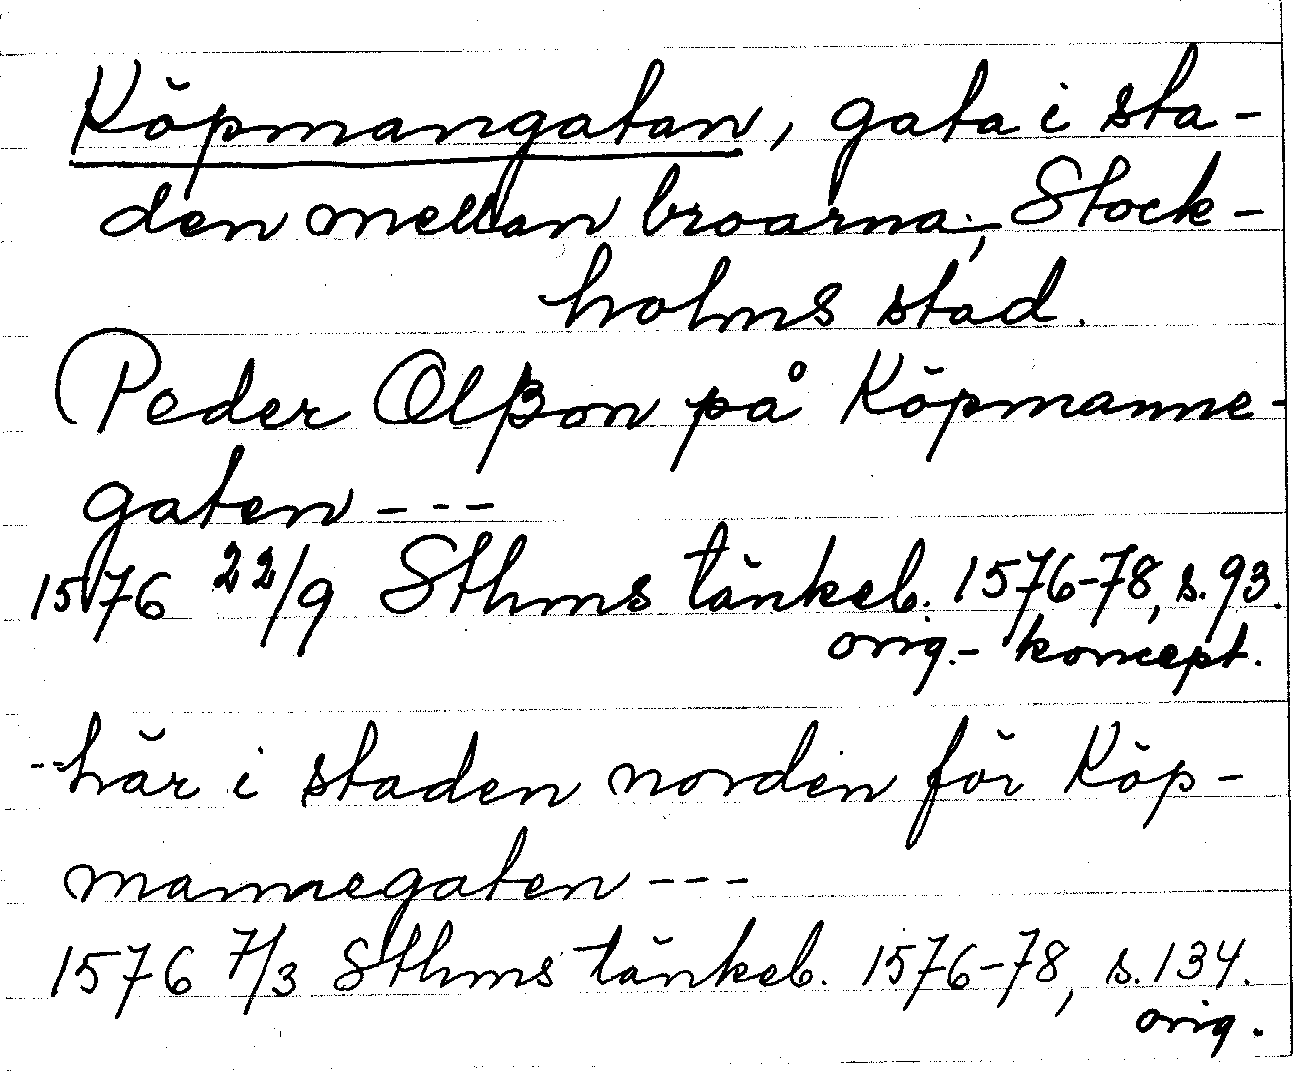 Köpmangatan, gata i sta-
den mellan broarna, Stock-
holms stad.
Peder Olßon på Köpmanne-
gaten - - -
1576 22/9 Sthms tänkeb. 1576-78, s. 93.
orig.- koncept.
- - här i staden norden för Köp-
mannegaten - - -
1576 7/3 Sthms tänkeb. 1576-78, s. 134.
orig.